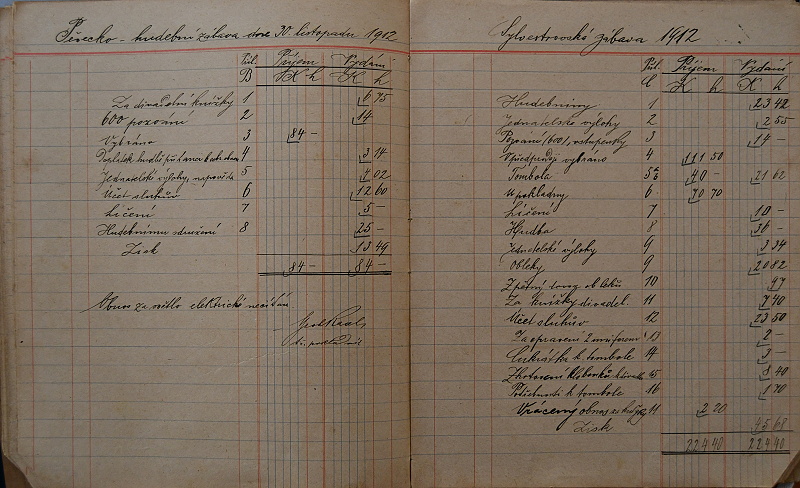 Pěvecko-hudební zábava dne 30. listopadu 1912
Přil. Příjem Vydání
B K h K h
Za divadelní knížky 1 6 75
600 pozvání 2 14
Vybráno 3 84 -
4 3 14
Jednatelské výlohy 5 4 02
Účet sluhův 6 12 60
Líčení 7 5 -
Hudebnímu sdružení 8 25 -
Zisk 13 49
84 - 84 -
Obnos za světlo elektrické
Sylvestrovská zábava 1912
Příl. Příjem Vydání
C K h K h
Hudebniny 1 23 42
Jednatelské výlohy 2 2 55
Pozvání /600/, vstupenky 3 14 -
V předprodeji vybráno 4 111 50
Tombola 5 40 - 21 62
U pokladny 6 70 70
Líčení 7 10 -
Hudba 8 36 -
Jednatelské výlohy 9 3 34
Obleky 9 20 82
Zpětný dovoz obleků 10 97
Za knížky divadel. 11 7 40
Účet sluhův 12 23 50
Za opravení 2 uniforem 13 2 -
k tombole 14 3 -
Zhotovení 15 8 40
k tombole 16 1 70
Vrácený obnos za knížky 11 2 20
Zisk 45 68
224 40 224 40